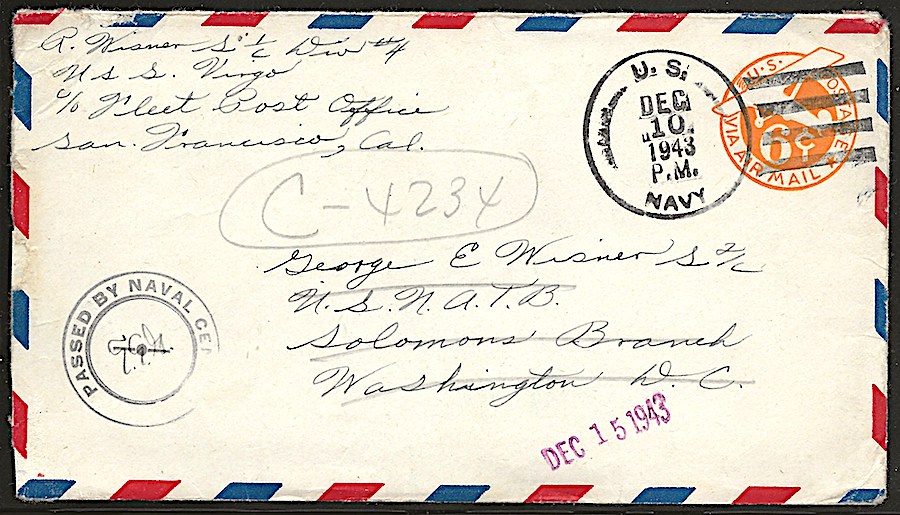 R. Wisner S 1/c Div #4
U S S. Virgo
c/o Fleet Post Office
San. Francisco, Cal.
U. S.
DEC
10
1943
P.M.
NAVY
U.S. POSTAGE
6¢
VIA AIR MAIL
C-4234
George E Wisner S 2/c
U.S.N.A.T.B.
Solomons Branch
Washington D. C.
PASSED BY NAVAL CEN
DEC 15 1943